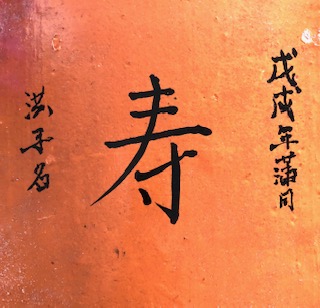 戊戌年蒲月
寿
洪子名